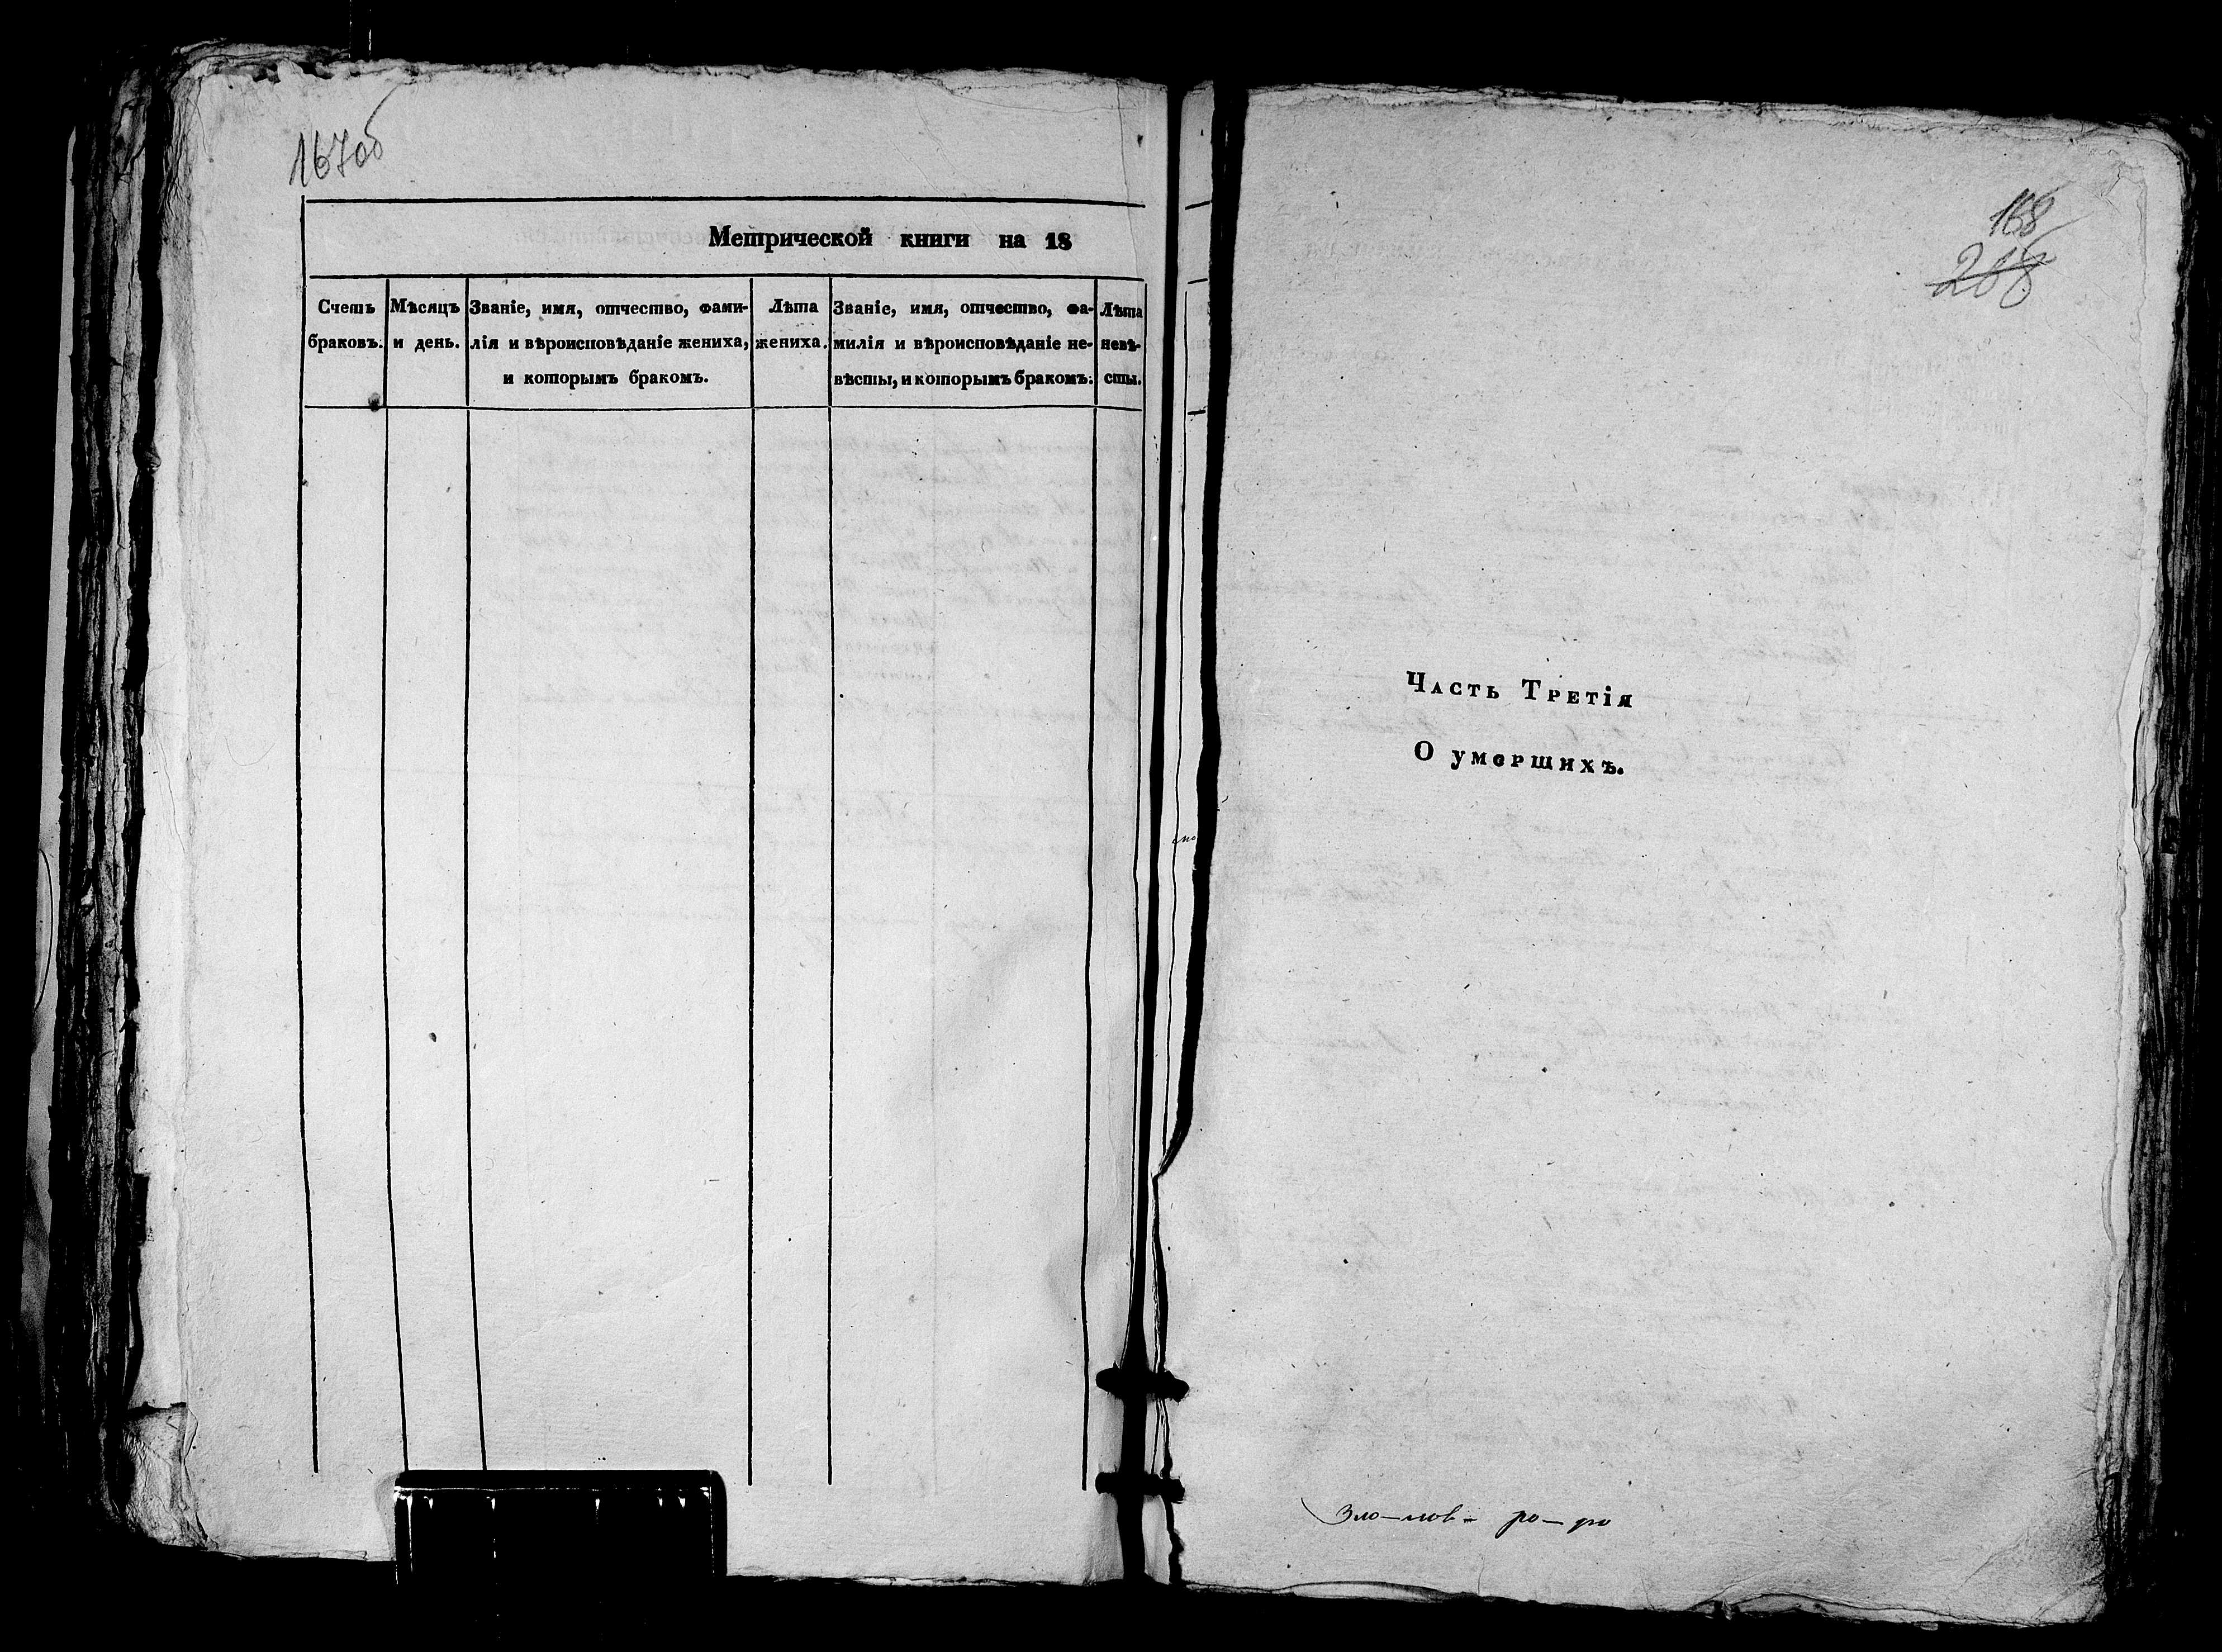 167об
Метрической книги на 18
Счетъ браковъ.
Мѣсяцъ и день.
Званіе, имя, отчество, фами-
лія и вѣроисповѣданіе жениха,
и которымъ бракомъ.
Лѣта жениха.
Званіе, имя, отчество, фа-
милія и вѣроисповѣданіе не-
вѣсты, и которымъ бракомъ.
Лѣта невѣ-
сты.
168
268
Часть Третія
О умершихъ.